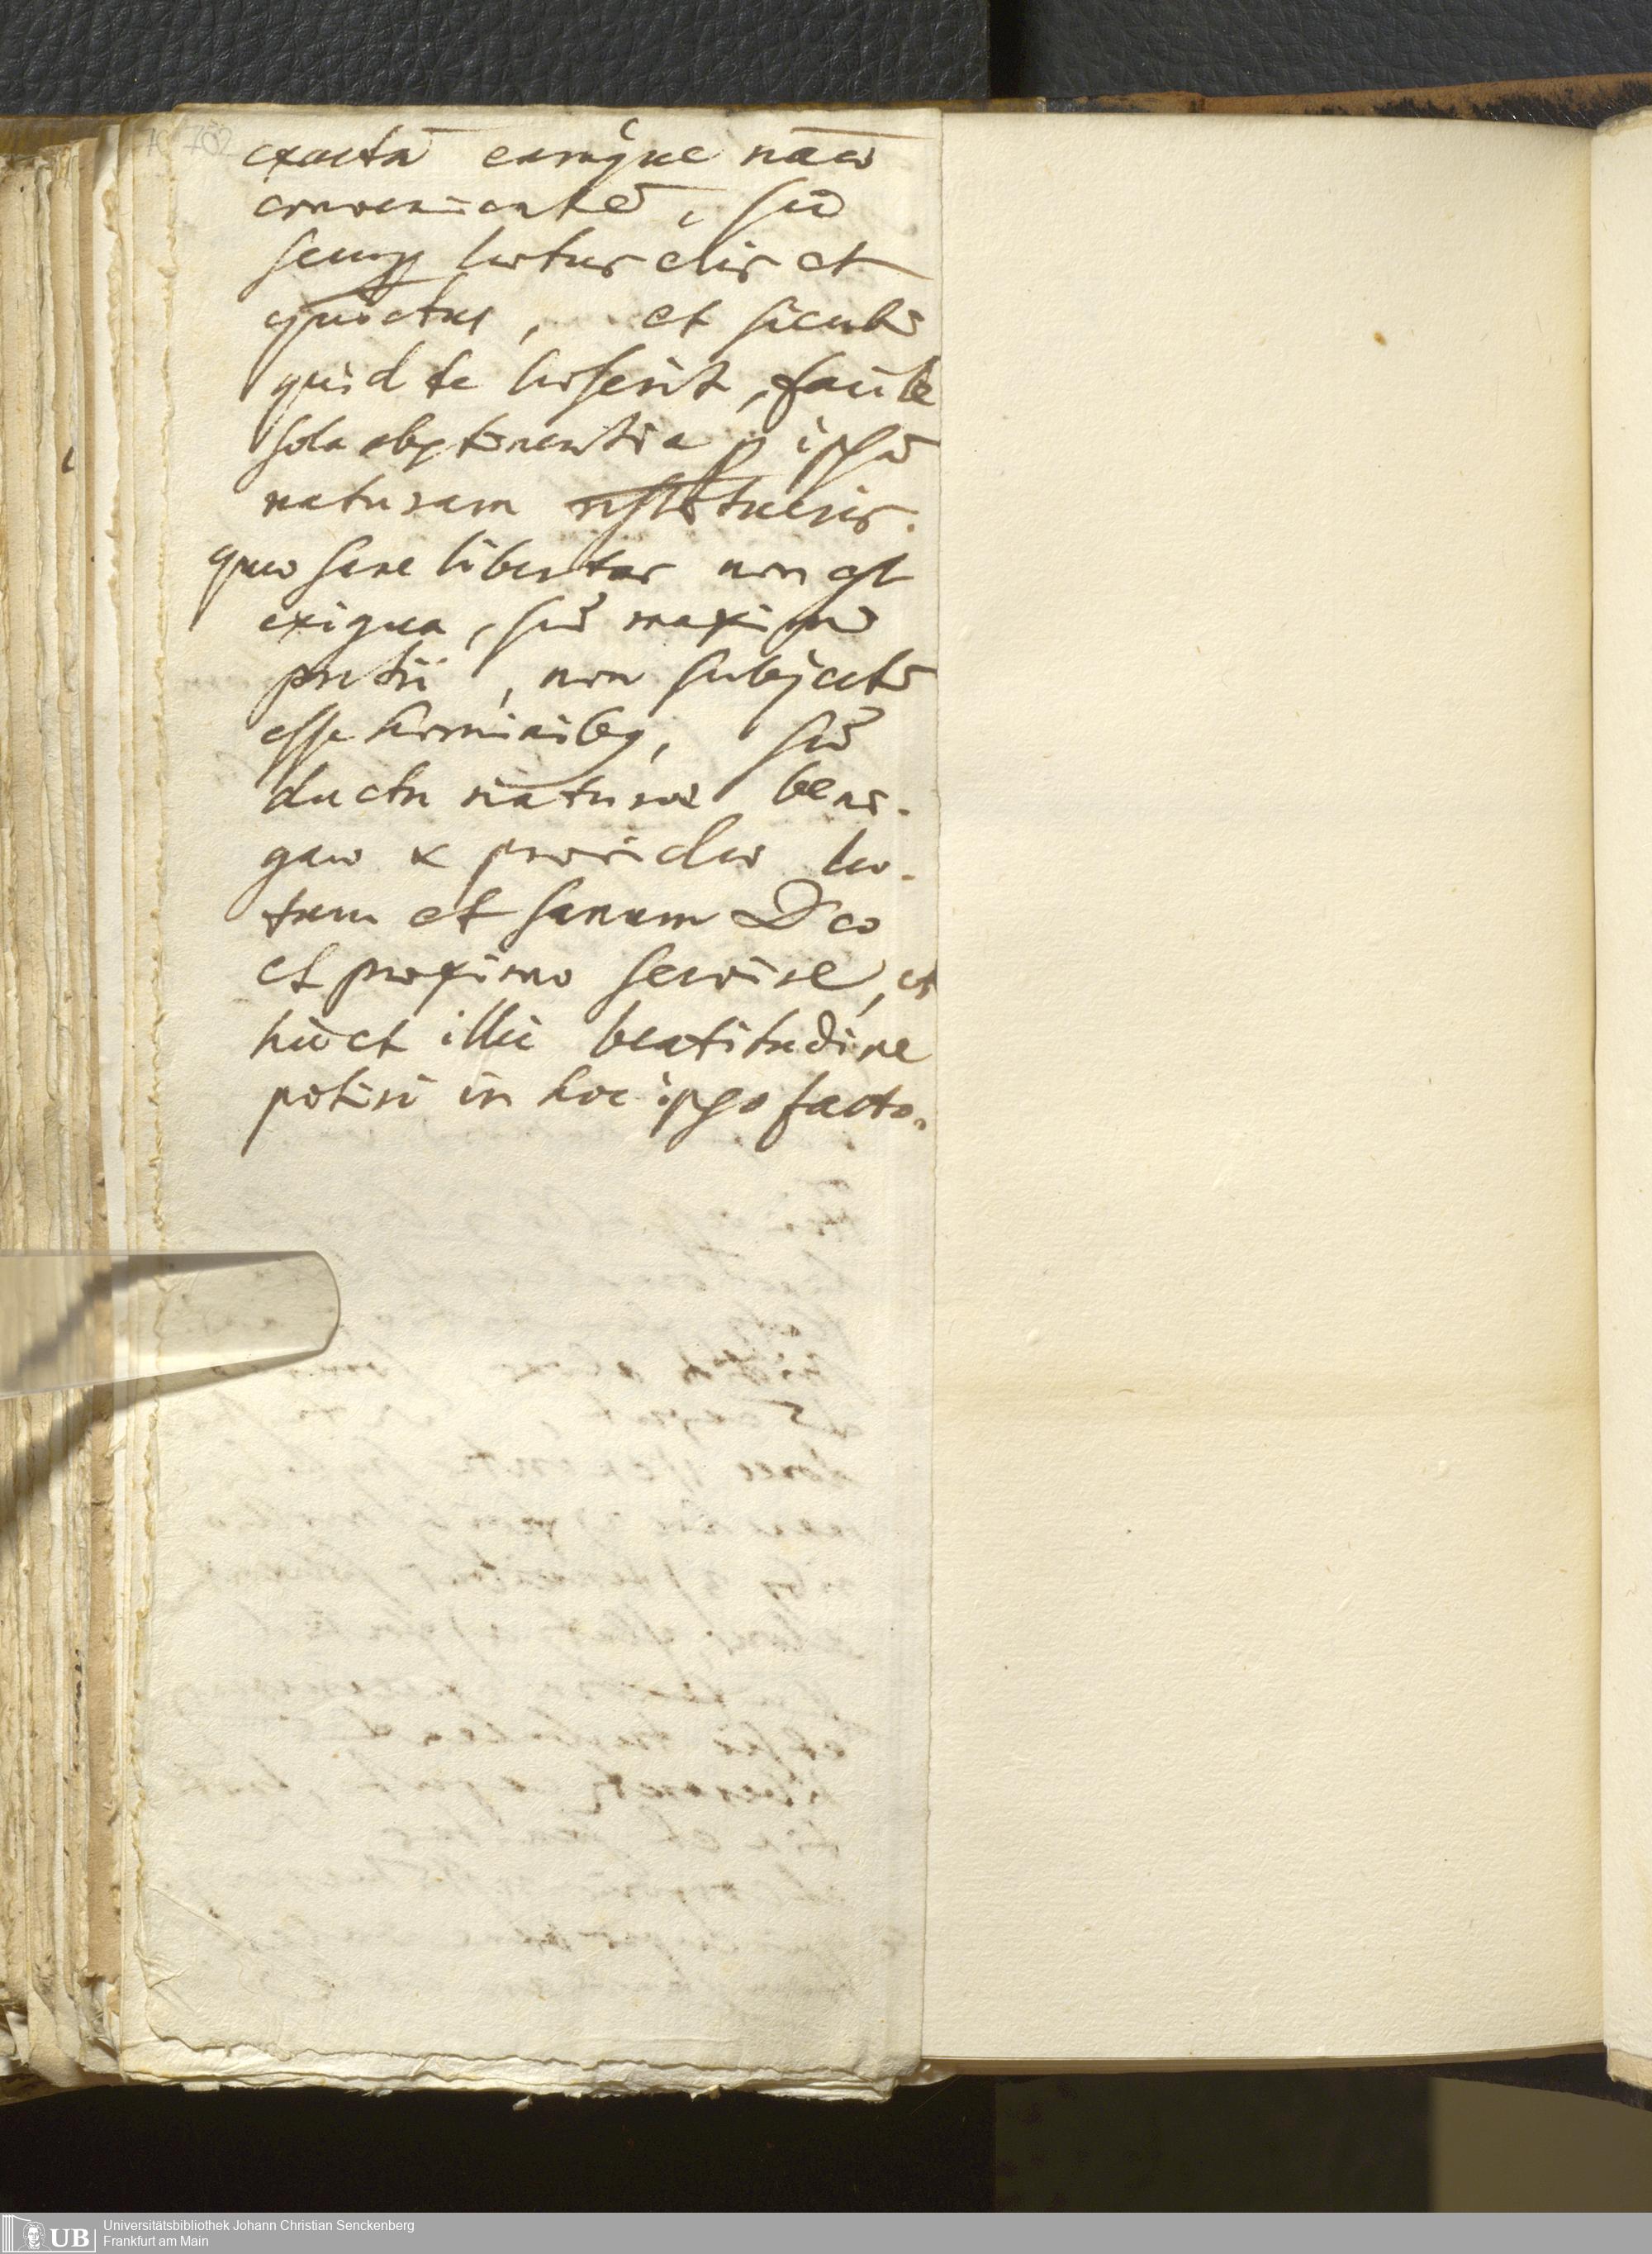 exactā eamque nāae
convenientē, sēd
semp laetus eris et
quietus, et sicubi
quid te laeserit, facile
sola abstinentia p ipsā
naturam restitueris.
quae sane libertas non est
exigua, sēd maximi
pretii, non subjectū
esse hominibq, sēd
ductu naturae beni-
gnae & providae lae-
tum et sanum Deo
et proximo servire, et
hic et illic beatitudine
potiri in hoc ipso facto.
Universitätsbibliothek Johann Christian Senckenberg
Frankfurt am Main
UB